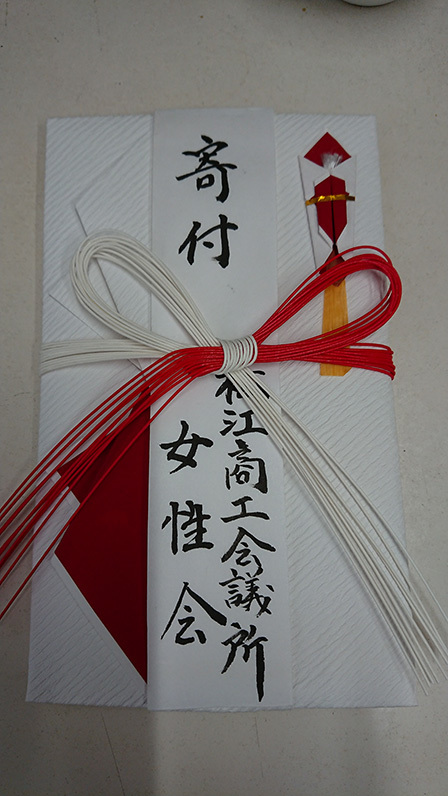 寄付
松江商工会議所
女性会